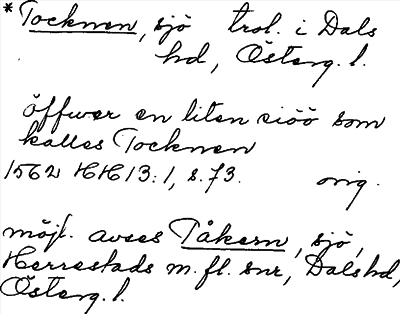 *Tocknen, sjö trol. i Dals
hd, Österg. l.
öffwer en liten siöö som
kalles Tocknen
1562 HH 13:1, s. 73. orig.
möjl. avses Tåkern, sjö,
Herrestads m. fl. snr, Dals hd,
Österg. l.